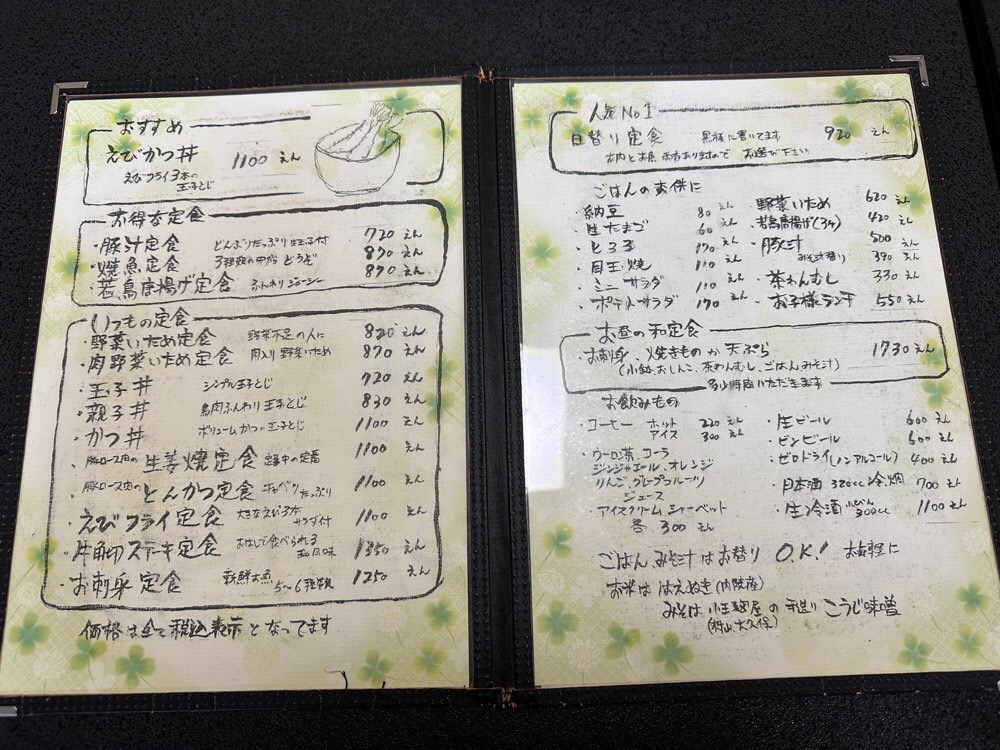 おすすめ
えびかつ丼 1100えん
えびフライ3本の
玉子とじ
お得な定食
・豚汁定食 どんぶりたっぷり 生玉子付 720えん
・焼魚定食 3種類の中から どうぞ 870えん
・若鳥唐揚げ定食 ふんわり ジューシー 870えん
いつもの定食
・野菜いため定食 野菜不足の人に 820えん
・肉野菜いため定食 肉入り野菜いため 870えん
・玉子丼 シンプル玉子とじ 720えん
・親子丼 鳥肉ふんわり玉子とじ 830えん
・かつ丼 ボリュームかつの玉子とじ 1100えん
・豚ロース肉の 生姜焼定食 定番中の定番 1100えん
・豚ロース肉の とんかつ定食 キャベツたっぷり 1100えん
・えびフライ定食 大きなえび3本 サラダ付 1100えん
・牛角切ステーキ定食 おはしで食べられる 和風味 1350えん
・お刺身定食 新鮮お魚 5〜6種類 1250えん
価格は全て税込表示となってます
人気No1
日替り定食 黒板に書いてます 920えん
お肉とお魚 両方ありますので お選び下さい
ごはんのお供に
・納豆 80えん
・生たまご 60えん
・とろろ 170えん
・目玉焼 110えん
・ミニサラダ 110えん
・ポテトサラダ 170えん
・野菜いため 620えん
・若鳥唐揚げ(3ヶ) 420えん
・豚汁 500えん
みそ汁替り 390えん
・茶わんむし 330えん
・お子様ランチ 550えん
お昼の和定食
・お刺身、焼きものか天ぷら 1730えん
(小鉢、おしんこ、茶わんむし、ごはん、みそ汁)
多少時間いただきます
お飲みもの
・コーヒー ホット 220えん
アイス 300えん
・ウーロン茶、コーラ
ジンジャエール、オレンジ
りんご、グレープフルーツ
ジュース
・アイスクリーム シャーベット
各 300えん
・生ビール 600えん
・ビンビール 600えん
・ゼロドライ(ノンアルコール) 400えん
・日本酒 320cc 冷、燗 700えん
・生冷酒 小びん 300cc 1100えん
ごはん、みそ汁はお替り O.K! お気軽に
お米は はえぬき(内陸産)
みそは 小王麹屋の手造り こうじ味噌
(村山大久保)